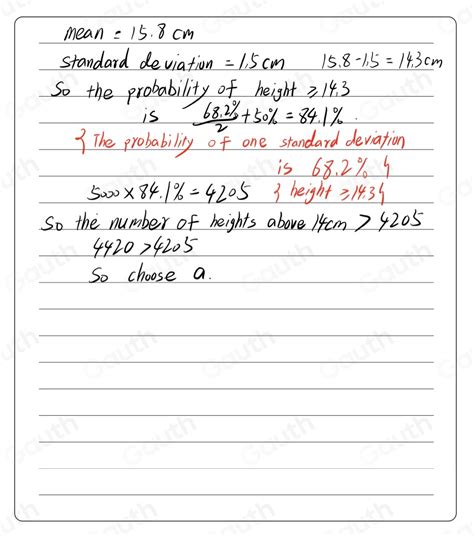 mean = 15.8 cm
standard deviation = 1.5 cm 15.8 - 1.5 = 14.3 cm
So the probability of height ≥ 14.3
is 68.2%/2 + 50% = 84.1%.
{ The probability of one standard deviation
is 68.2% }
5000 × 84.1% = 4205 { height ≥ 14.3 }
So the number of heights above 14cm > 4205
4420 > 4205
So choose a.
Gauth